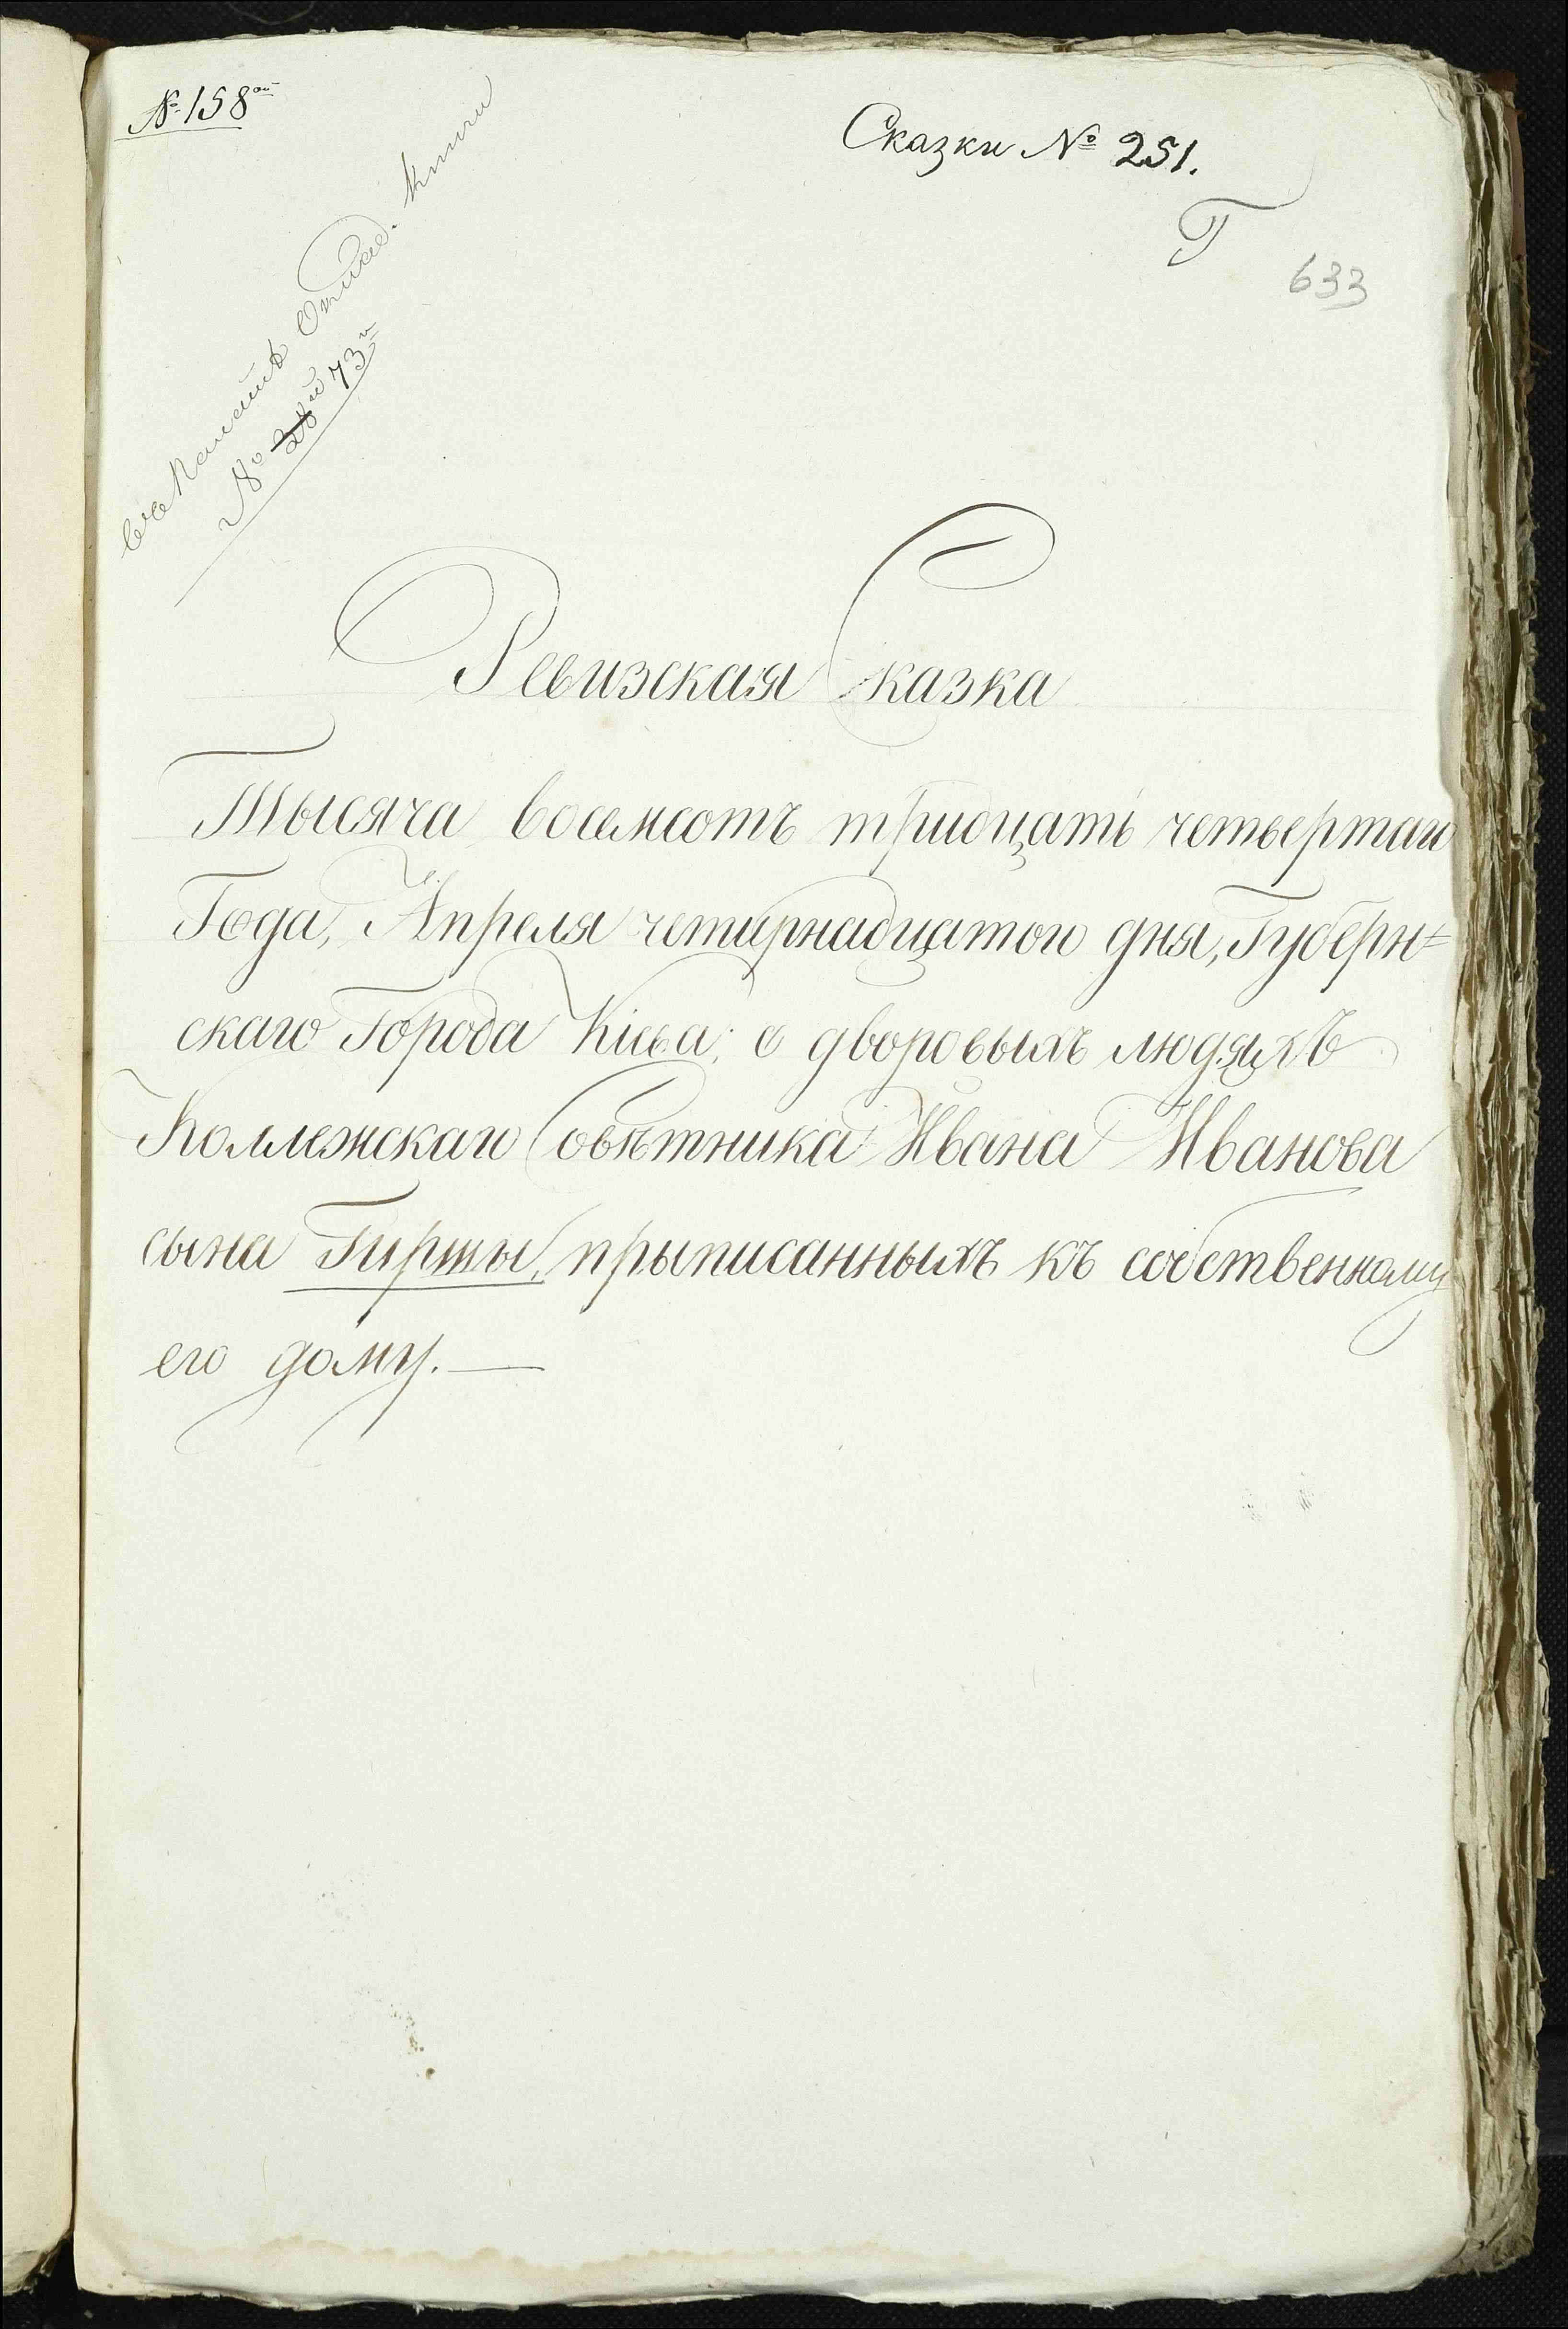 № 158ой
Сказки № 251.
Г
633
книги
№ 28й 73й
Ревизская Сказка
Тысяча восемсотъ тридцать четвертаго
Года, Апреля четирнадцатого дня, Губерн=
скаго Города Кіева; о дворовыхъ людяхъ
Коллежскаго Совѣтника Ивана Иванова
сына Гиршы, прыписанныхъ къ собственному
его дому.—